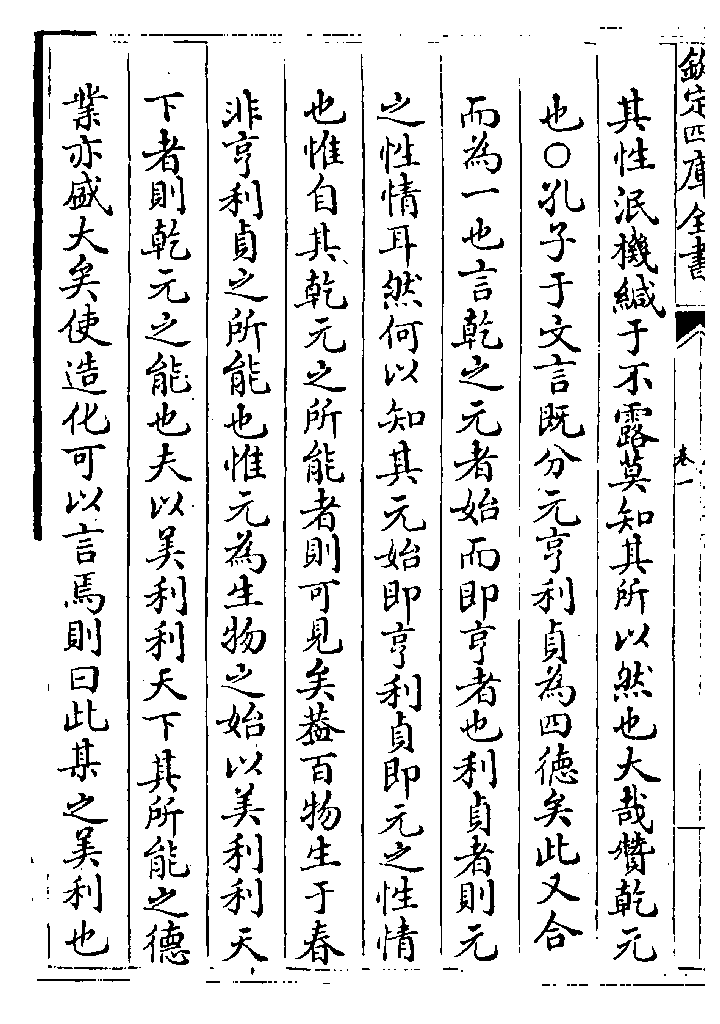 欽定四庫全書
卷一
其性泯機緘于不露莫知其所以然也大哉贊乾元
也○孔子于文言既分元亨利貞為四德矣此又合
而為一也言乾之元者始而即亨者也利貞者則元
之性情耳然何以知其元始即亨利貞即元之性情
也惟自其乾元之所能者則可見矣葢百物生于春
非亨利貞之所能也惟元為生物之始以美利利天
下者則乾元之能也夫以美利利天下其所能之德
業亦盛大矣使造化可以言焉則曰此某之美利也